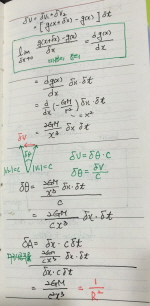 δV = δV₁ + δV₂
= [g(x+δx) - g(x)] δt
lim δx→0 g(x+δx)-g(x) / δx = dg(x) / dx
= dg(x)/dx δx·δt
= d/dx (-GM/x²) δx·δt
= 2GM/x³ δx δt
δV
δθ
|x| = c
δV = δθ·c
δθ = δV/c
δθ = 2GM/x³ δx·δt / c
= 2GM/cx³ δx·δt
δA = δx·cδt
2GM/cx³ δx·δt / δx·cδt
= 2GM/c²x³ = 1/R²